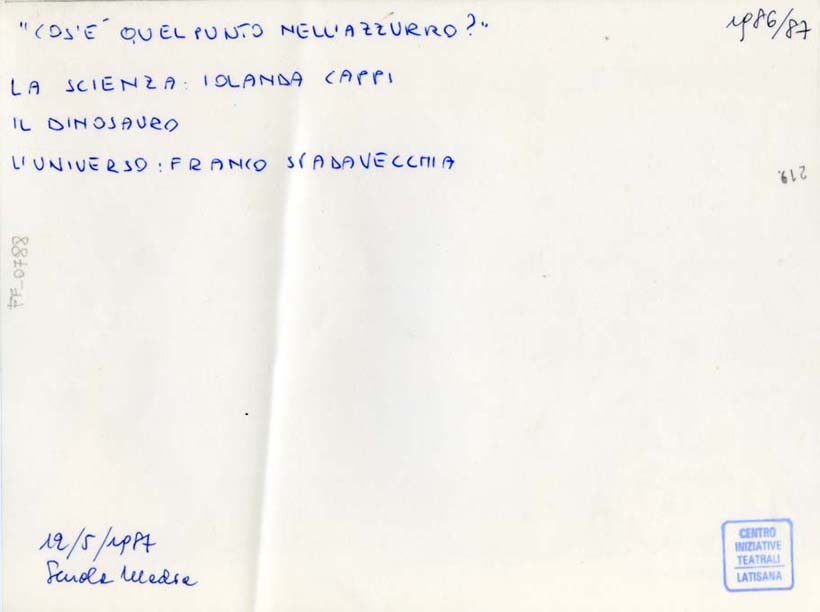 "COS'E' QUEL PUNTO NELL'AZZURRO?"
1986/87
LA SCIENZA: IOLANDA CAPPI
IL DINOSAURO
L'UNIVERSO: FRANCO SPADAVECCHIA
219.
FF_0788
12/5/1987
Scuola Media
CENTRO
INIZIATIVE
TEATRALI
LATISANA